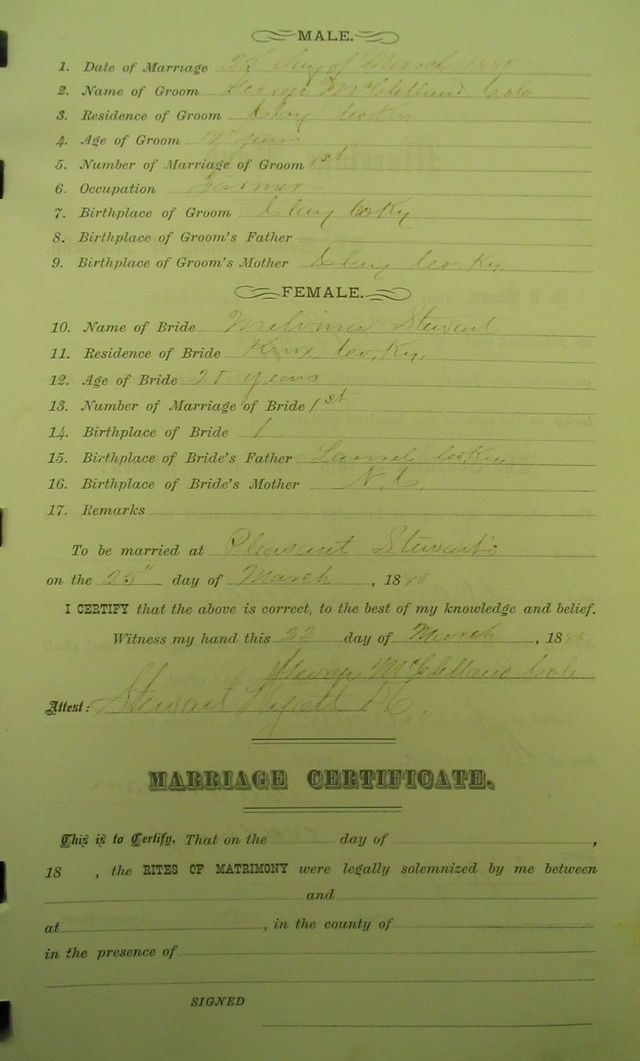 MALE.
1. Date of Marriage day of March
2. Name of Groom George McClelland Cole
3. Residence of Groom Clay Co Ky
4. Age of Groom years
5. Number of Marriage of Groom 1st
6. Occupation Farmer
7. Birthplace of Groom Clay Co Ky
8. Birthplace of Groom's Father
9. Birthplace of Groom's Mother Clay Co. Ky.
FEMALE.
10. Name of Bride Melvina Stewart
11. Residence of Bride Knox Co. Ky.
12. Age of Bride years
13. Number of Marriage of Bride 1st
14. Birthplace of Bride
15. Birthplace of Bride's Father Laurel Co Ky
16. Birthplace of Bride's Mother N.C.
17. Remarks
To be married at Pleasant Stewart's
on the 25" day of March, 18
I CERTIFY that the above is correct, to the best of my knowledge and belief.
Witness my hand this 22 day of March, 18
George McClelland Cole
Attest: Stewart
MARRIAGE CERTIFICATE.
This is to Certify, That on the day of ,
18 , the RITES OF MATRIMONY were legally solemnized by me between
and
at , in the county of
in the presence of
SIGNED